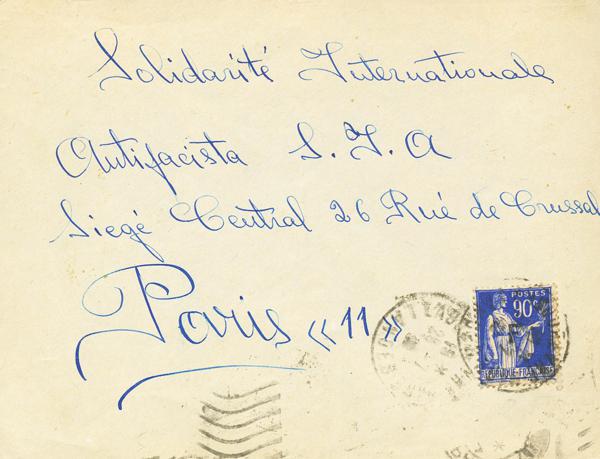 Solidarité Internationale
Antifacista S. I. A
Siegé Central 26 Rué de Crussal
Paris « 11 »
POSTES
90c
REPUBLIQUE FRANÇAISE